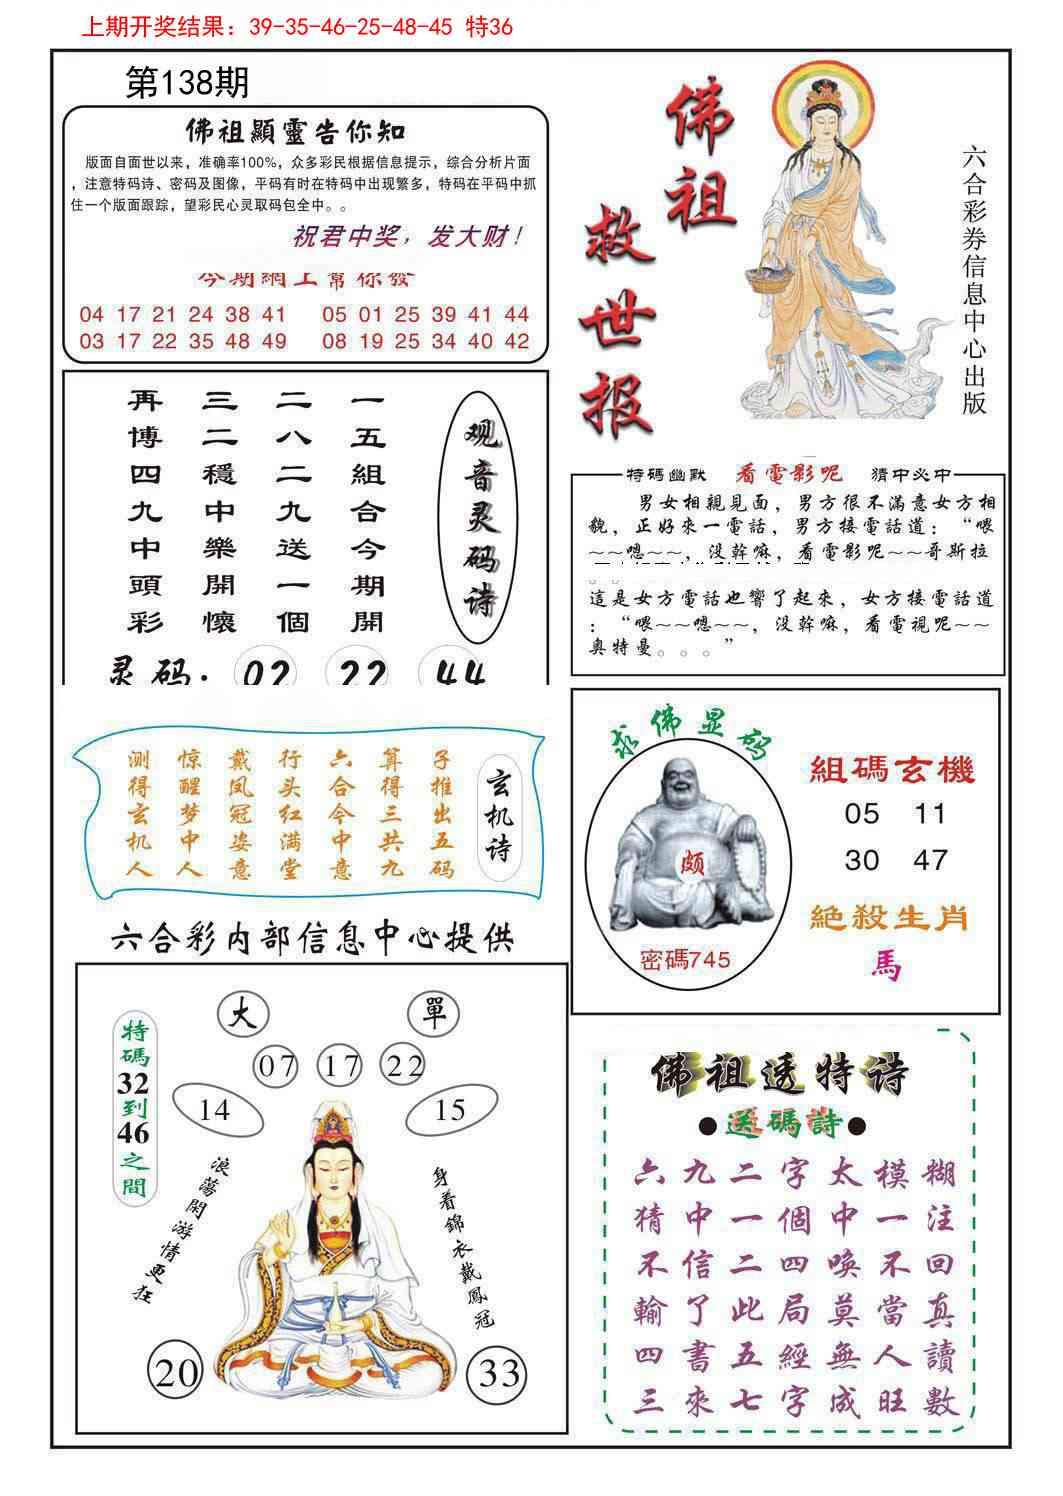 上期开奖结果：39-35-46-25-48-45 特36
第138期
佛祖顯靈告你知
版面自面世以来，准确率100%，众多彩民根据信息提示，综合分析片面
，注意特码诗、密码及图像，平码有时在特码中出现繁多，特码在平码中抓
住一个版面跟踪，望彩民心灵取码包全中。。
祝君中奖，发大财！
今期網上幫你發
04 17 21 24 38 41 05 01 25 39 41 44
03 17 22 35 48 49 08 19 25 34 40 42
佛祖救世报
六合彩券信息中心出版
观音灵码诗
一五組合今期開
二八二九送一個
三二穩中樂開懷
再博四九中頭彩
灵码：02 22 44
特碼幽默 看電影呢 猜中必中
男女相親見面，男方很不滿意女方相
貌，正好來一電話，男方接電話道：“喂
~~嗯~~，沒幹嘛，看電影呢~~哥斯拉
這是女方電話也響了起來，女方接電話道
：“喂~~嗯~~，沒幹嘛，看電視呢~~
奥特曼。。。”
玄机诗
子推出五码
算得三共九
六合今中意
行头红满堂
戴凤冠姿意
惊醒梦中人
测得玄机人
六合彩内部信息中心提供
求佛显码
颇
密碼745
組碼玄機
05 11
30 47
絕殺生肖
馬
特碼32到46之間
大 單
07 17 22
14 15
浪蕩閑游情更狂
身着錦衣戴鳳冠
20 33
佛祖透特诗
●送碼詩●
六九二字太模糊
猜中一個中一注
不信二四喚不回
輸了此局莫當真
四書五經無人讀
三來七字成旺數